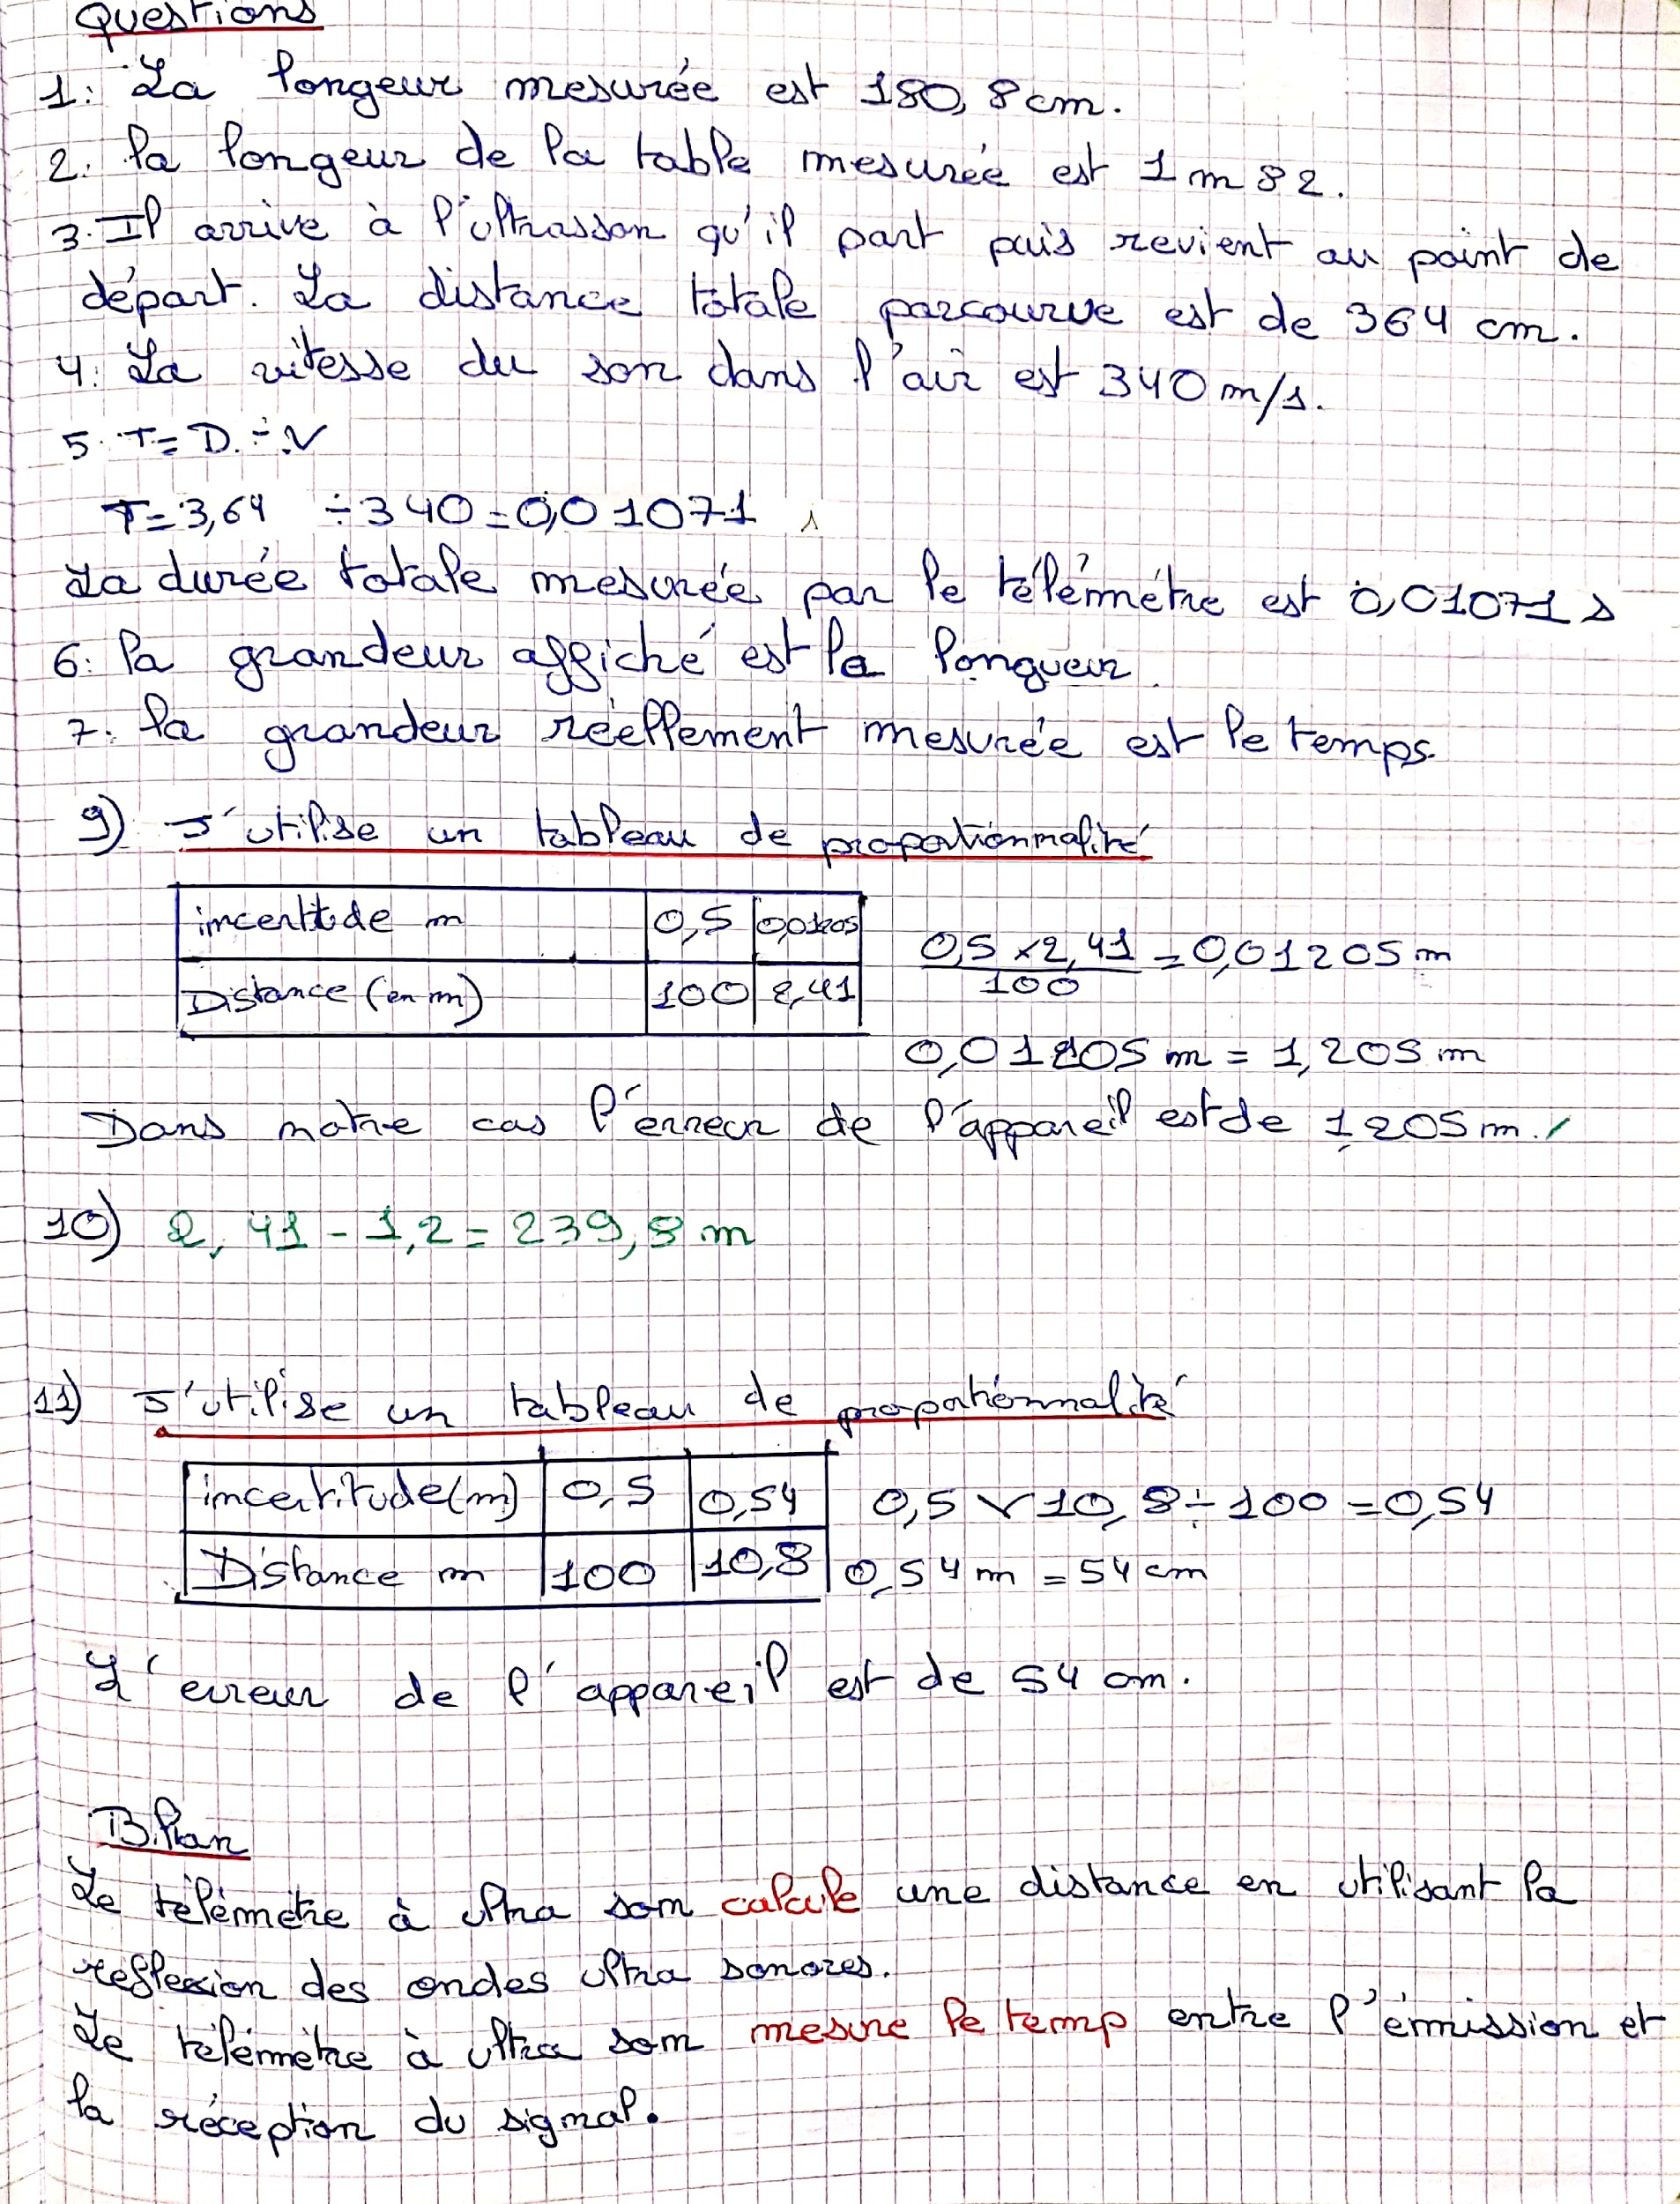 Questions
1: La longeur mesurée est 180,8 cm.
2. la longeur de la table mesurée est 1 m 82.
3. Il arrive à l'ultrasson qu'il part puis revient au point de
départ. La distance totale parcourue est de 364 cm.
4: La vitesse du son dans l'air est 340 m/s.
5. T= D ÷ V
T= 3,64 ÷ 340 = 0,01071 s
La durée totale mesurée par le télémétre est 0,01071 s
6: la grandeur affiché est la longueur.
7: la grandeur réellement mesurée est le temps.
9) J'utilise un tableau de proportionnalité
incertitude m 0,5 0,01205
Distance (en m) 100 2,41
0,5 x 2,41 / 100 = 0,01205 m
0,01205 m = 1,205 m
Dans notre cas l'erreur de l'appareil est de 1,205 m.
10) 2,41 - 1,2 = 239,8 m
11) J'utilise un tableau de proportionnalité
incertitude (m) 0,5 0,54
Distance m 100 10,8
0,5 x 10,8 ÷ 100 = 0,54
0,54 m = 54 cm
L'erreur de l'appareil est de 54 cm.
Bilan
Le télémètre à ultra son calcule une distance en utilisant la
reflexion des ondes ultra sonores.
Le télémètre à ultra son mesure le temp entre l'émission et
la réception du signal.